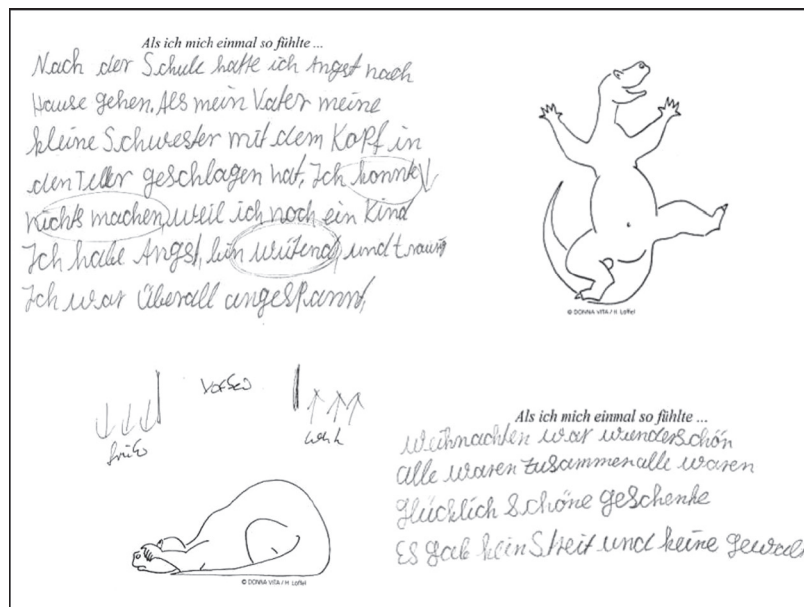 Als ich mich einmal so fühlte ...
Nach der Schule hatte ich Angst nach
Hause gehen. Als mein Vater meine
kleine Schwester mit dem Kopf in
den Teller geschlagen hat, Ich konnte
nichts machen, weil ich noch ein Kind
Ich habe Angst, bin wütend, und traurig
Ich war überall angespannt,
© DONNA VITA / H. Löffel
© DONNA VITA / H. Löffel
Als ich mich einmal so fühlte ...
Weihnachten war wunderschön
alle waren zusammen alle waren
glücklich schöne geschenke
Es gab kein Streit und keine gewalt